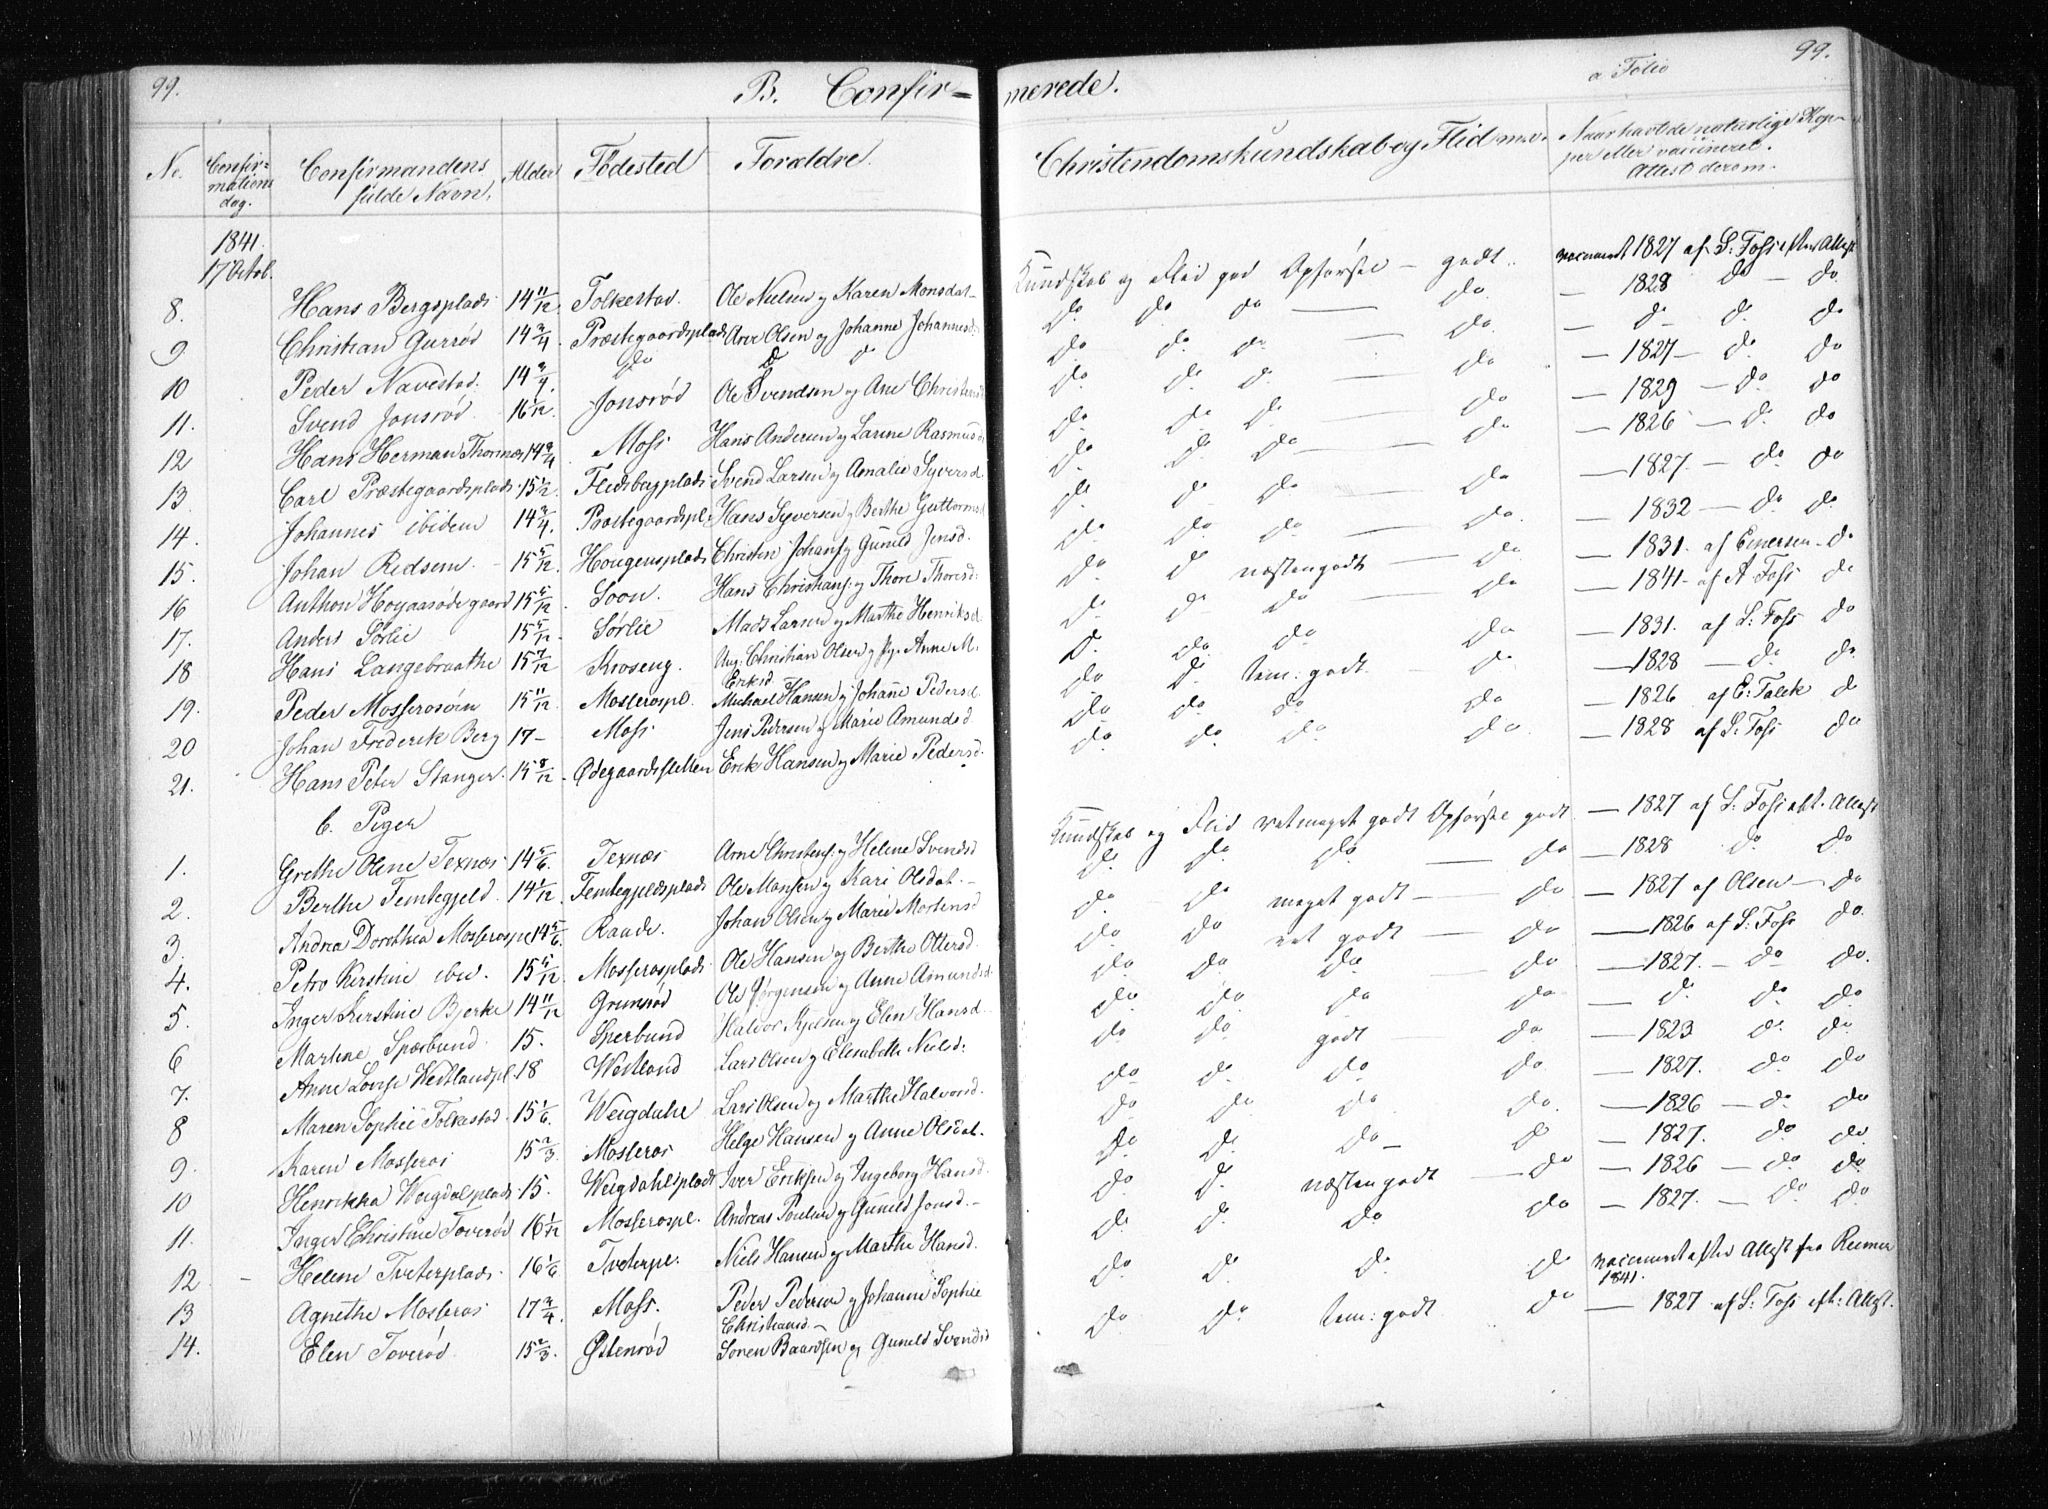 99.
B. Confir=
No. Confirmations dag. Confirmandens fulde Navn. Alder Födested Forældre.
1841.
17 Octob.
8. Hans Bergsplads 14 11/12 Folkestad. Ole Nielsen og Karen Monsdat-
9 Christian Gurrød 14 3/4 Præstegaardsplads Arve Olsen og Johanne Johannesd.
10 Peder Navestad. 14 3/4. do D d
11. Svend Jonsrød 16 1/12. Jonsrød Ole Svendsen og Ane Christensd
12 Hans Herman Thornæs 14 3/4 Moss Hans Andersen og Larine Rasmusd
13. Carl Præstegaardsplads 15 1/2. Fledsbergplads Svend Larsen og Amalie Syversd.
14. Johannes ibidem 14 3/4. Præstegaardspl. Hans Syversen og Berthe Guttormsd
15. Johan Redsem - 15 5/12 Hougensplads Christen Johans. og Gunild Jensd.
16 Anthon Hoyaasødegaard 15 5/12. Soon. Hans Christians. og Thore Thoresd.
17. Anders Sørlie 15 5/12. Sørlie Mads Larsen og Marthe Henriksd.
18 Hans Langebraathe 15 7/12 Kroseng. Ung. Christian Olsen og Pg. Anne M. Eriksd
19. Peder Mosserosöen 15 11/12 Mosserospl. Michael Hansen og Johane Pedersd.
20 Johan Frederik Berg 17 - Moss Jens Pedersen og Marie Amundsd.
21. Hans Peter Stanger. 15 8/12. Ødegaardsletten Erik Hansen og Marie Pedersd.
b. Piger
1. Grethe Oline Texnæs 14 5/6. Texnæs Arne Christens. og Helene Svendsd
2. Berthe Temtegjeld. 14 1/12 Temtegjeldsplads Ole Monsen og Kari Olsdat. -
3. Andrea Dorothea Mosserospl 14 5/6. Raade. Johan Olsen og Marie Mortensd
4. Petro Kirstine ibid. 15 5/12. Mosserosplads Ole Hansen og Berthe Ottersd.
5. Inger Kirstine Bjerke 14 11/12 Grimsrød Ole Jørgensen og Anne Amundsd.
6 Marthe Spærbund. 15. Sperbund Halvor Kjelsen og Elen Hansd.
7. Anne Lovise Westlandspl. 18 Westland Lars Olsen og Elisabeth Nielsd.
8 Maren Sophie Folkestad 15 1/6. Weigdahl Lars Olsen og Marthe Halvorsd.
9. Karen Mosseros 15 2/3. Mosseros Helge Hansen og Anne Olsdat.
10 Henrikka Weigdalplads 15. Weigdahlsplads Iver Eriksen og Ingeborg Hansd.
11. Inger Christine Toverød 16 1/12 Mosserospl. Andreas Poulsen og Gunild Jonsd. -
12 - Helene Tveterplads. 16 1/6 Tveterpl. Niels Hansen og Marthe Hansd.
13 Agnethe Mosseros 17 3/4 Moss. Peder Pedersen og Johanne Sophie Christiansd. -
14. Elen Toverød. 15 2/3. Østenrød Sören Baardsen og Gunild Svendsd
99.
a Folio
merede.
Christendomskundskab og Flid m.v. Naar havt de naturlige Kopper eller vaccineret. Attest derom.
Kundskab og Flid god Opførsel - godt. vaccineret 1827 af S: Foss efter Attest
do do do — do — 1828 do - do.
do do do — do. — do - do do
do do d. — do — 1827 - do do
do. do do. — do — 1829 - do. do
do. do do - — do. — 1826 - do. do
do do do — do — 1827. - do. do
do do do. — do. — 1832 - do do.
do d næsten godt — do — 1831. af Emersen - do
d. do do — do — 1841 - af A Foss do
d. do do do — 1831. af S: Foss do
do d. tem: godt. - do — 1828 - do do.
do do do do — 1826 af E: Falck do
do. do. do do. — 1828 af S: Foss do
Kundskab og Flid ret meget godt Opførsel godt. — 1827 af S. Foss eft. Attest
d. do. do. — do — 1828 do do
do. - do meget godt - do — 1827 af Olsen - do
do do ret godt - do — 1826 af S: Foss do.
do. do do — do — 1827. - do do.
do do. do do — d. d. do
do do. godt do. — 1823 do. do.
do do. do do — 1827. do. do
do do. do do. — 1826 - do. do
do do. do - d — 1827. do do.
do. d. næsten godt - do — 1826 - do. do.
d. d. do do — 1827. - do. do
do d. d. do vaccineret efter Attest fra Reimer 1841.
do. do. tem: godt do — 1827 af S: Foss eft: Attest.